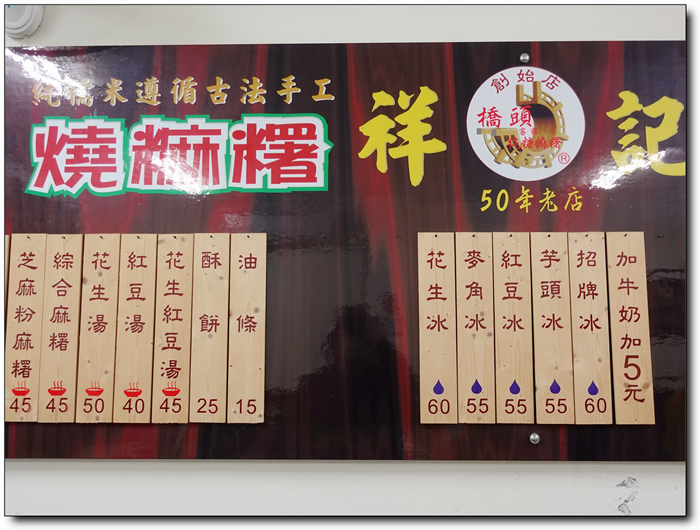 純糯米遵循古法手工
燒麻糬
祥
創始店
橋頭
®
記
50年老店
芝麻粉麻糬 45
綜合麻糬 45
花生湯 50
紅豆湯 40
花生紅豆湯 45
酥餅 25
油條 15
花生冰 60
麥角冰 55
紅豆冰 55
芋頭冰 55
招牌冰 60
加牛奶加5元